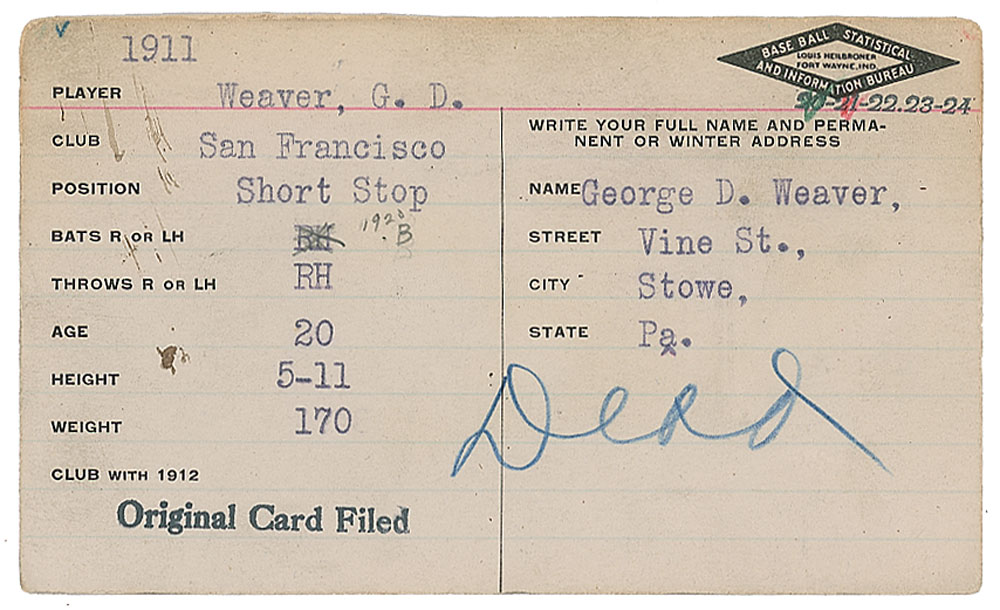 1911
BASE BALL STATISTICAL
LOUIS HEILBRONER
FORT WAYNE, IND.
AND INFORMATION BUREAU
20-21-22.23-24
PLAYER Weaver, G. D.
CLUB San Francisco
POSITION Short Stop
BATS R OR LH RH 1920 B
THROWS R OR LH RH
AGE 20
HEIGHT 5-11
WEIGHT 170
CLUB WITH 1912
Original Card Filed
WRITE YOUR FULL NAME AND PERMA-
NENT OR WINTER ADDRESS
NAME George D. Weaver,
STREET Vine St.,
CITY Stowe,
STATE Pa.
Dead